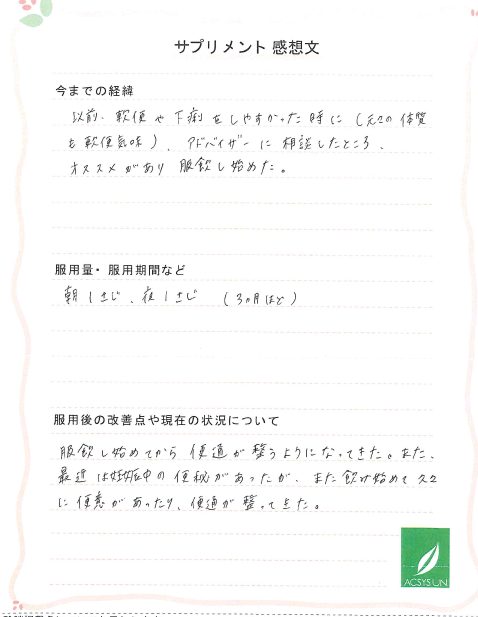 サプリメント 感想文
今までの経緯
以前、軟便や下痢をしやすかった時に（元々の体質
も軟便気味）、アドバイザーに相談したところ、
オススメがあり服飲し始めた。
服用量・服用期間など
朝1さじ、夜1さじ （3ヵ月ほど）
服用後の改善点や現在の状況について
服飲し始めてから便通が整うようになってきた。また、
最近は妊娠中の便秘があったが、また飲み始めて久々
に便意があったり、便通が整ってきた。
ACSYSUN